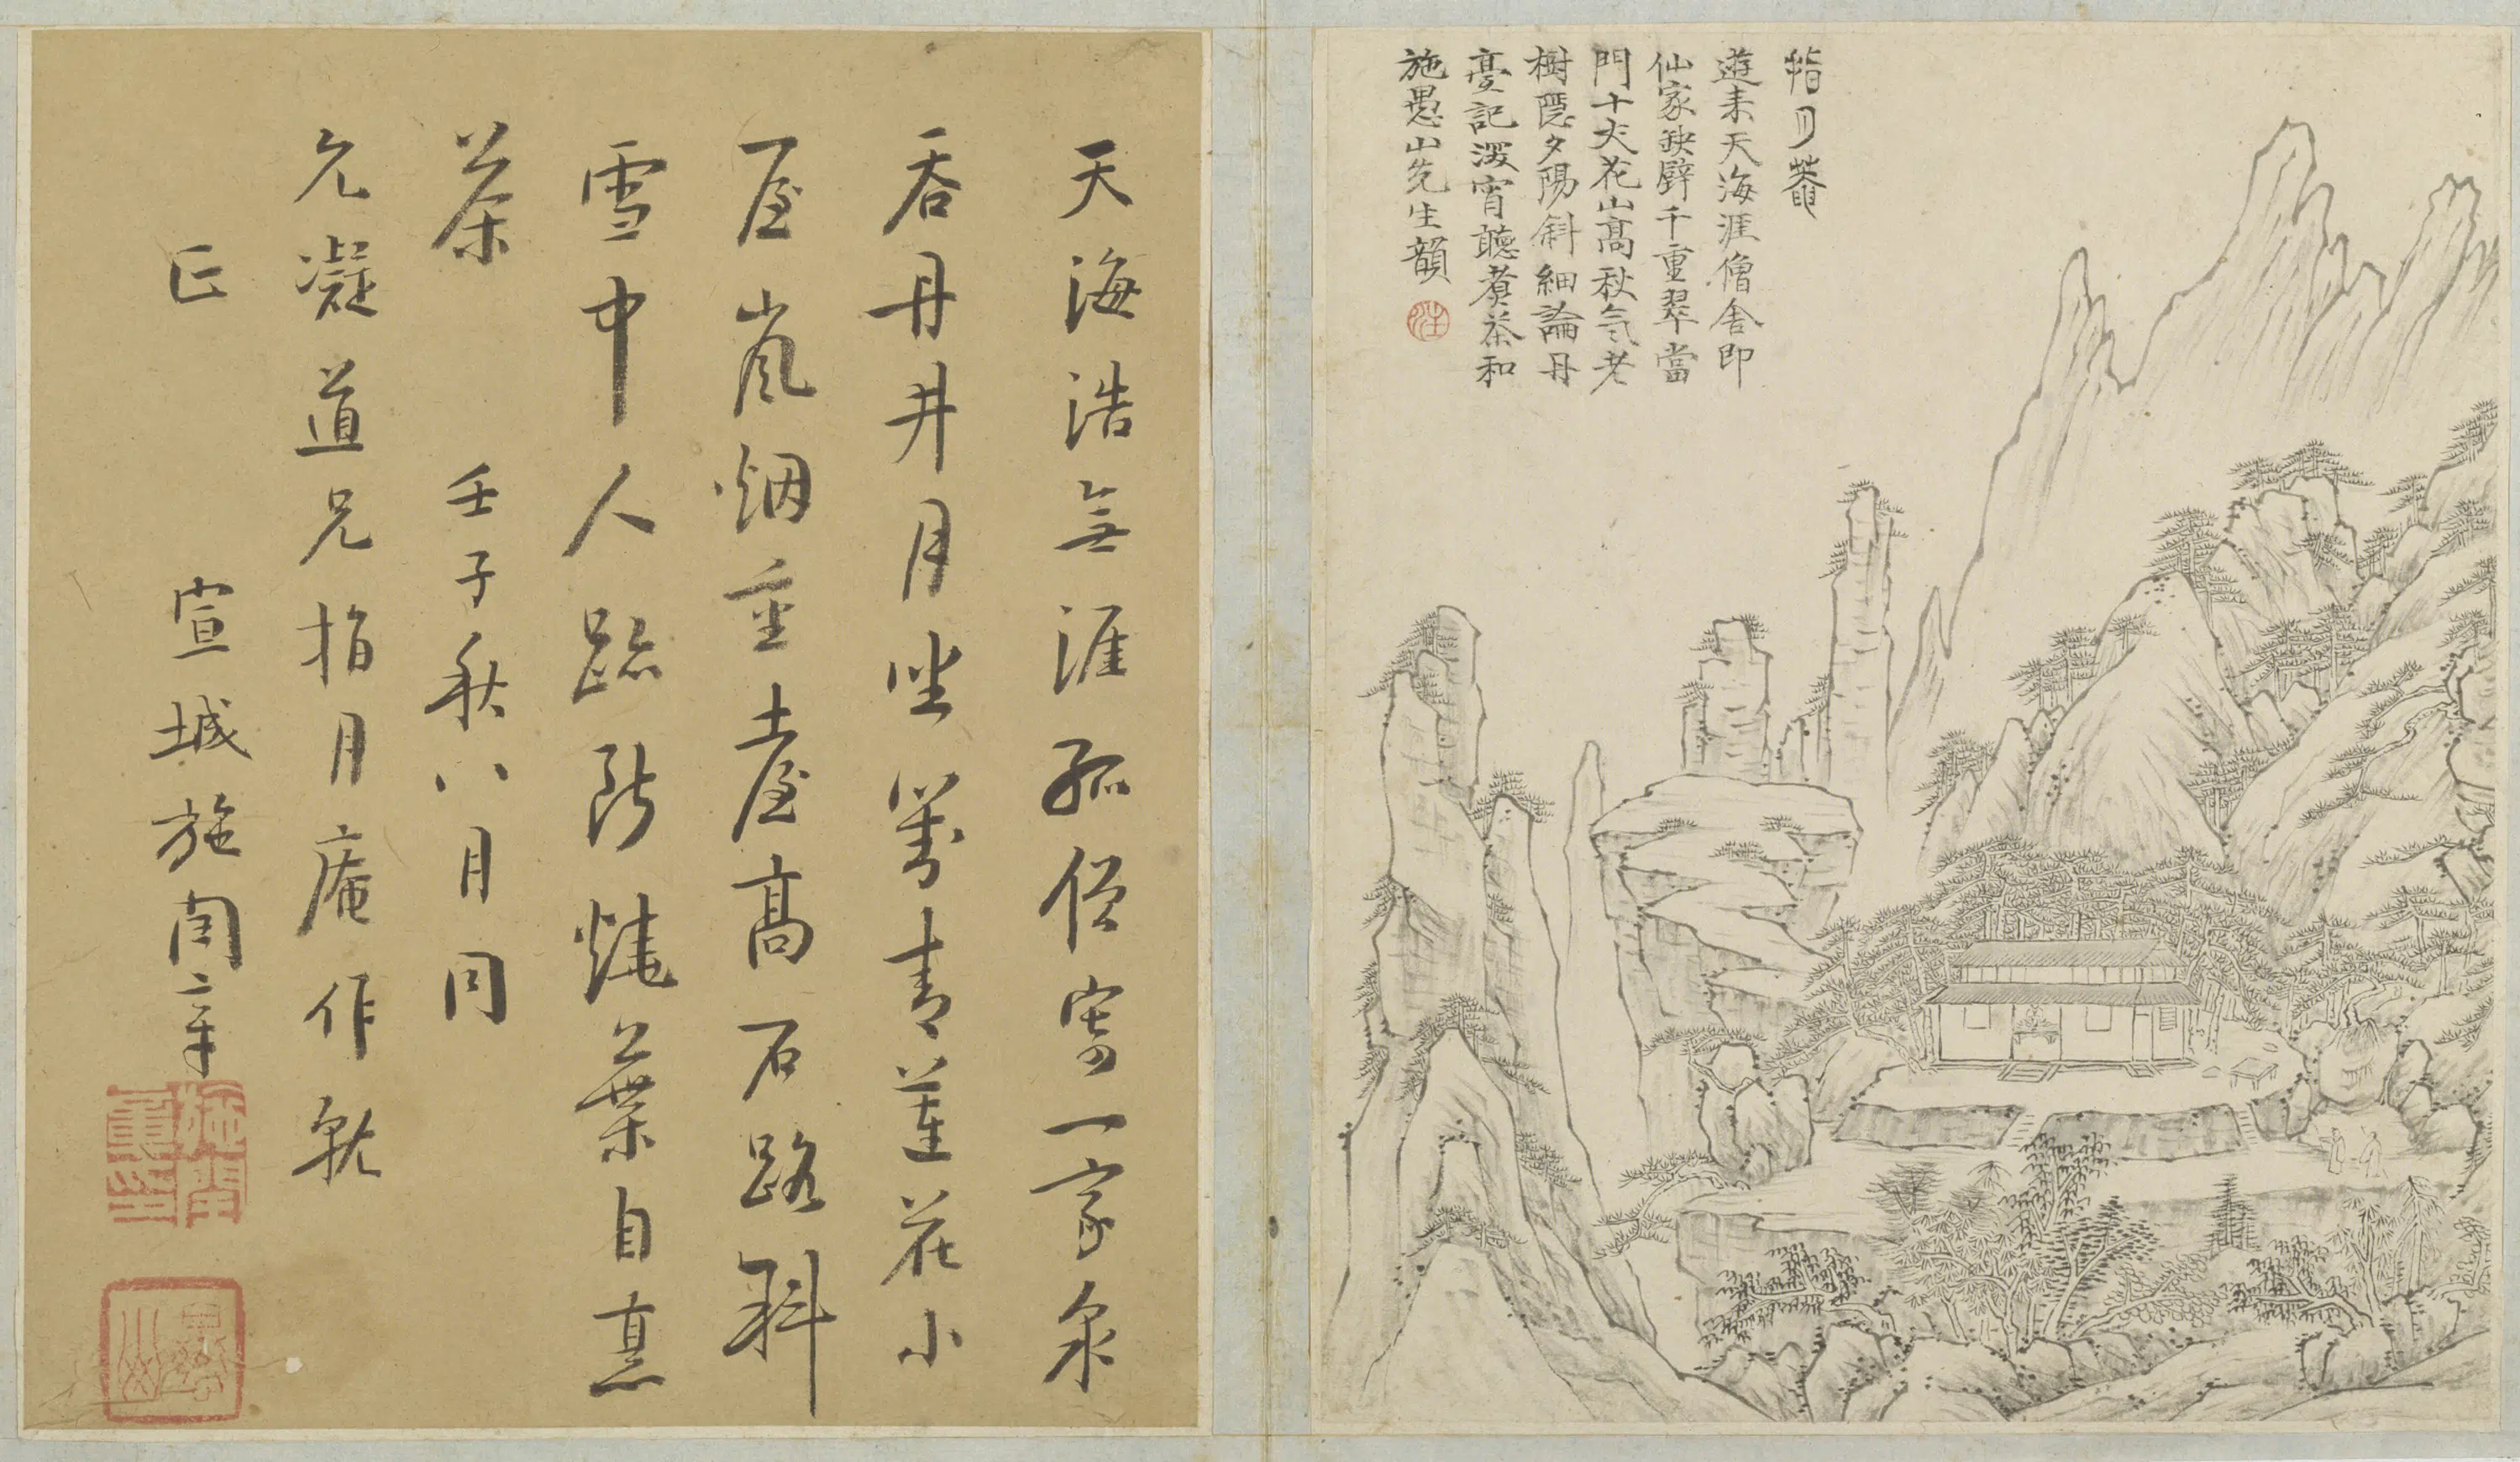 指月菴
遊来天海涯僧舎即
仙家鉄壁千重翠當
門十丈花山高秋気老
樹隠夕陽斜細論丹
臺記深宵聽煮茶和
施愚山先生韻
天海浩無涯孤僧寄一家泉
吞丹井月坐萬青蓮花小
屋嵐烟重臺高石路斜
雪中人跡斷燒葉自烹
茶 壬子秋八月同
允凝道兄指月庵作就
正 宣城施閏章
施閏章印
愚山